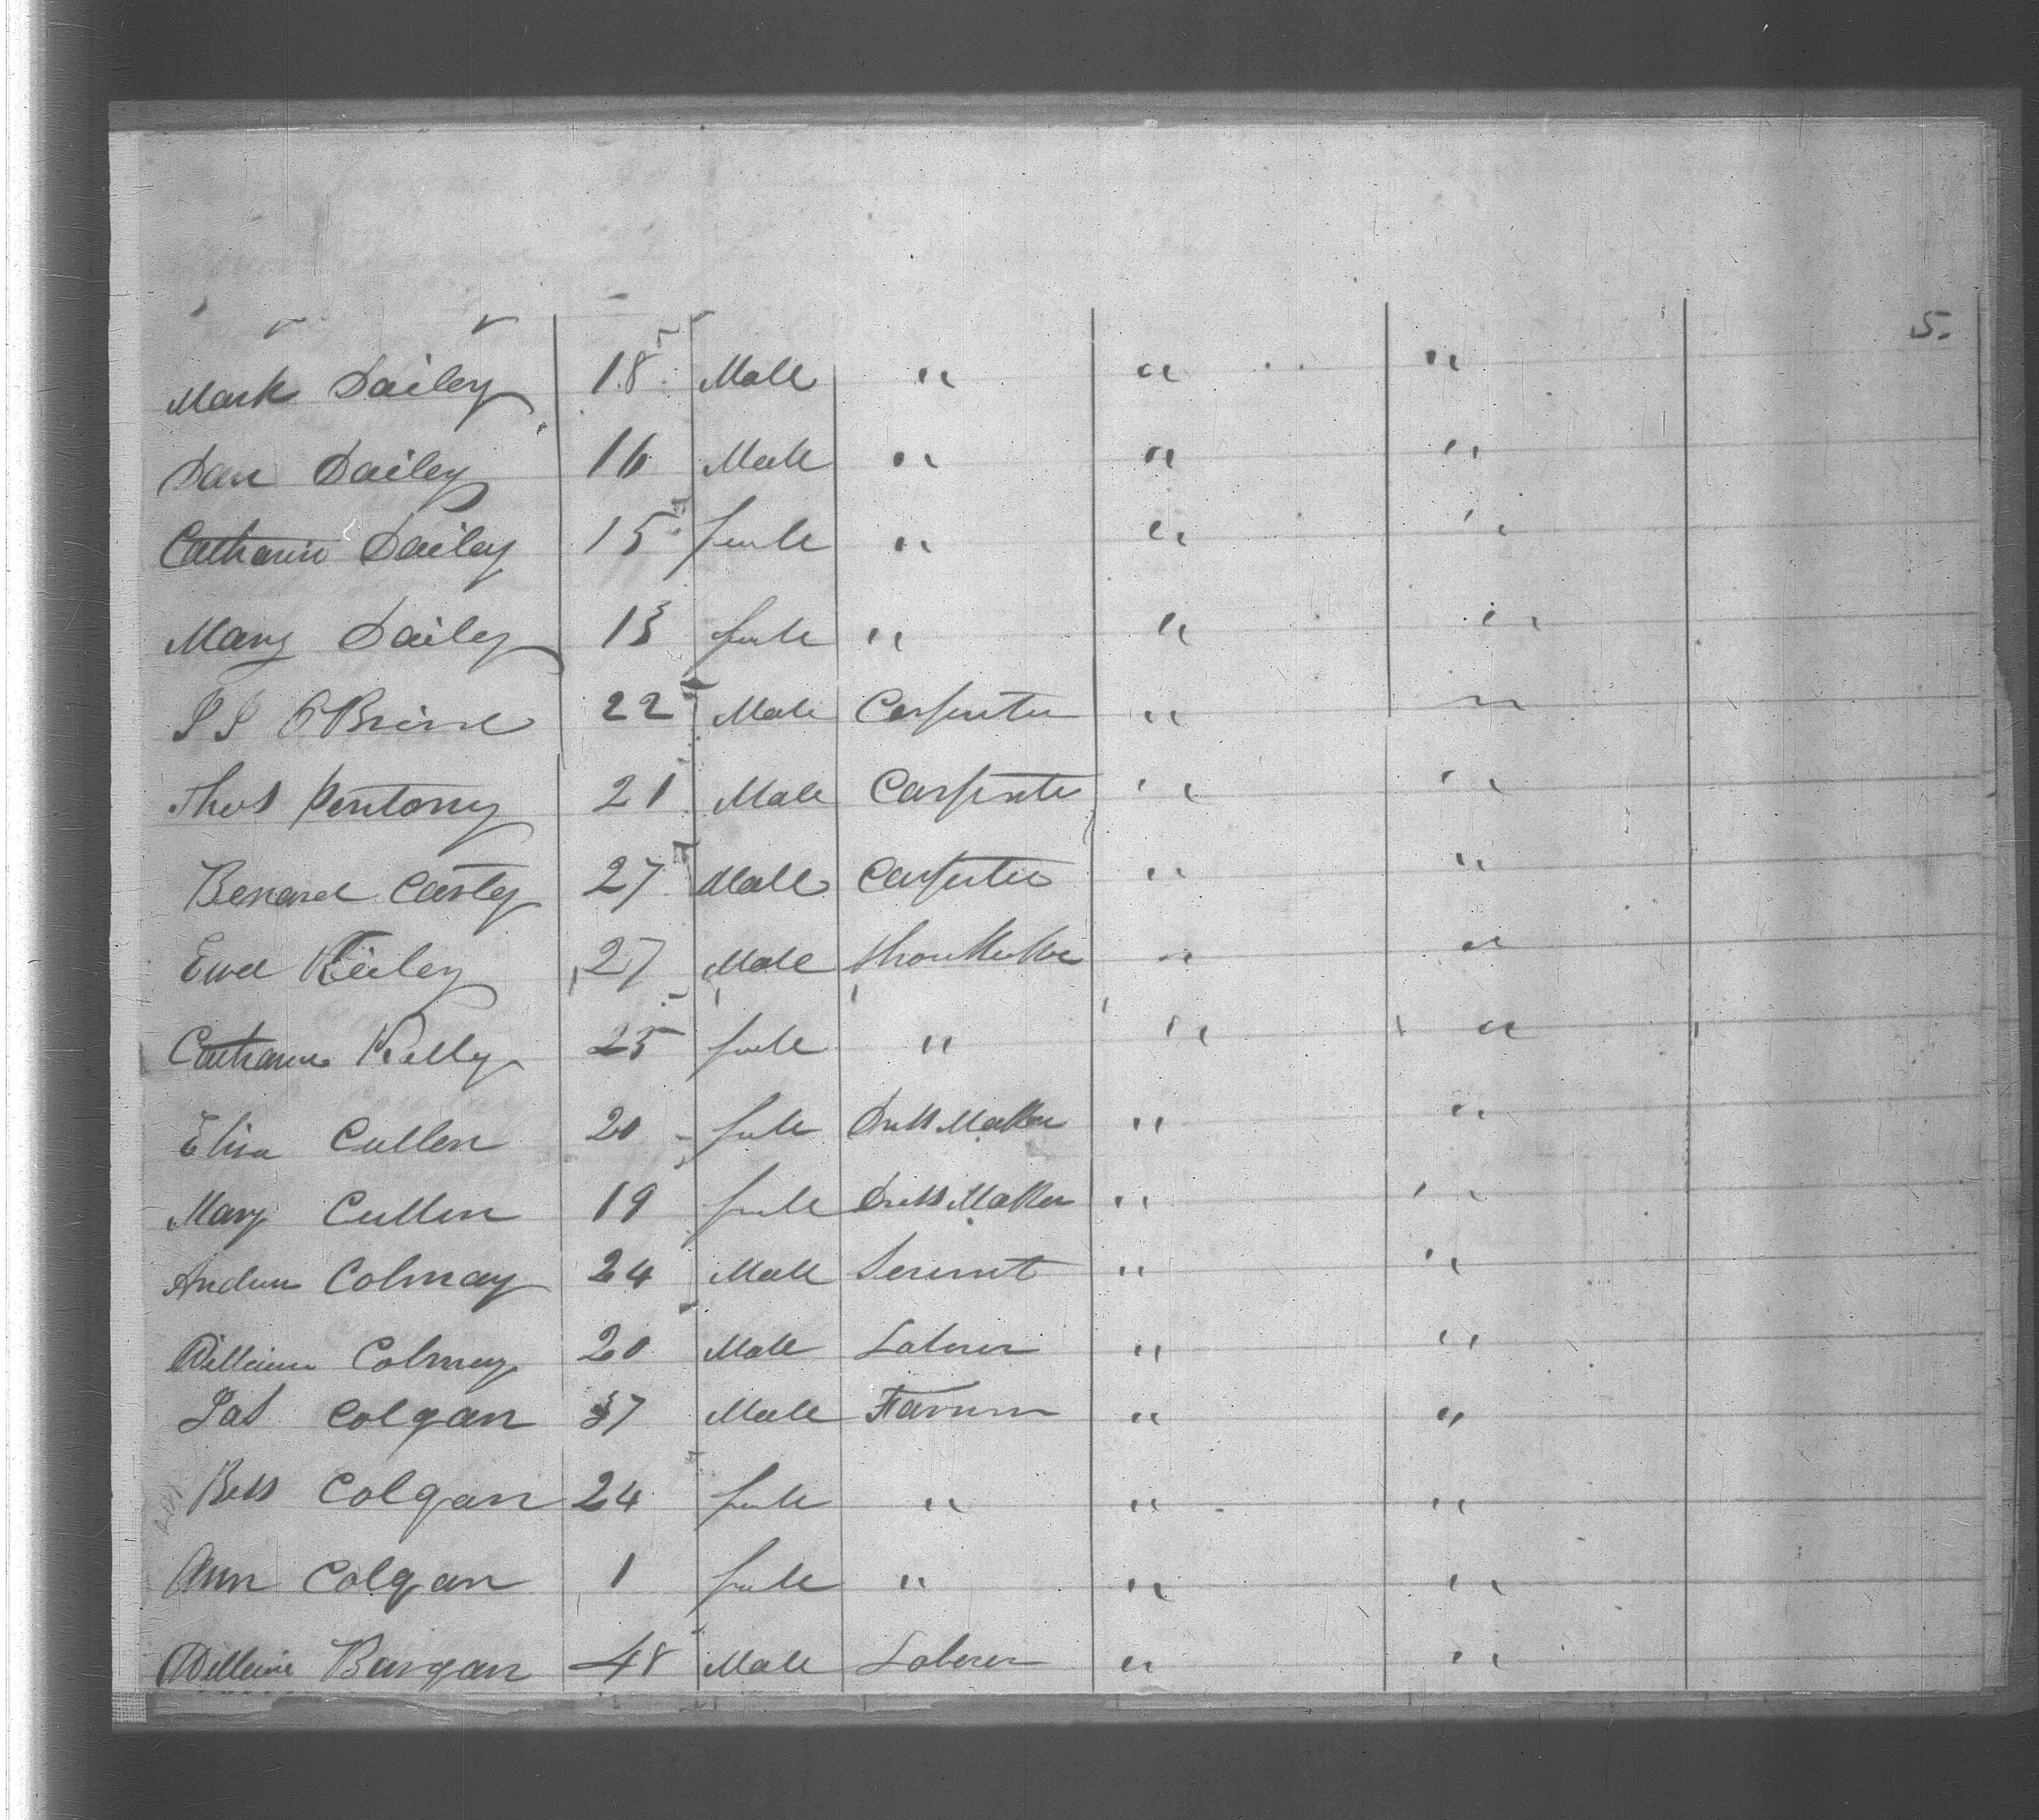 5.
Mark Dailey 18 Male " " "
Dan Dailey 16 Male " " "
Catharin Dailey 15 female " " "
Mary Dailey 13 female " " "
P J O'Brine 22 Male Carpenter " "
Thos Pentony 21 Male Carpenter " "
Benard Carley 27 Male Carpenter " "
27 Male " "
Catharin Kelly 25 female " " "
Elisa Cullen 20 female Dress Maker " "
Mary Cullen 19 female Dress Maker " "
Andrew Colmay 24 Male Servent " "
William Colmay 20 Male Laborer " "
Pat Colgan 37 Male Farmer " "
Bess Colgan 24 female " " "
Ann Colgan 1 female " " "
William Bargan 48 Male Laborer " "